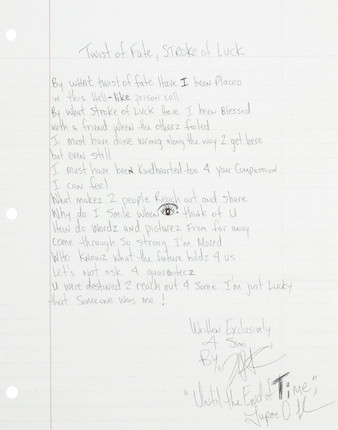 Twist of Fate, Stroke of Luck
By what twist of fate Have I been Placed
in this Hell-like prison cell
By what Stroke of Luck Have I been Blessed
with a friend when the otherz failed
I must have done wrong along the way 2 get here
but even still
I must have been Kindhearted too 4 your Compassion
I can feel
What makez 2 people Reach out and share
Why do I smile when think of U
How do wordz and picturez From far away
come through So strong I'm Moved
WHO Knowz what the future holdz 4 us
Let's not ask 4 guaranteez
U were destined 2 reach out 4 Some I'm just Lucky
that Someone was me!
Written Exclusively
4 Simi
By
"Until the End of Time,"
Tupac